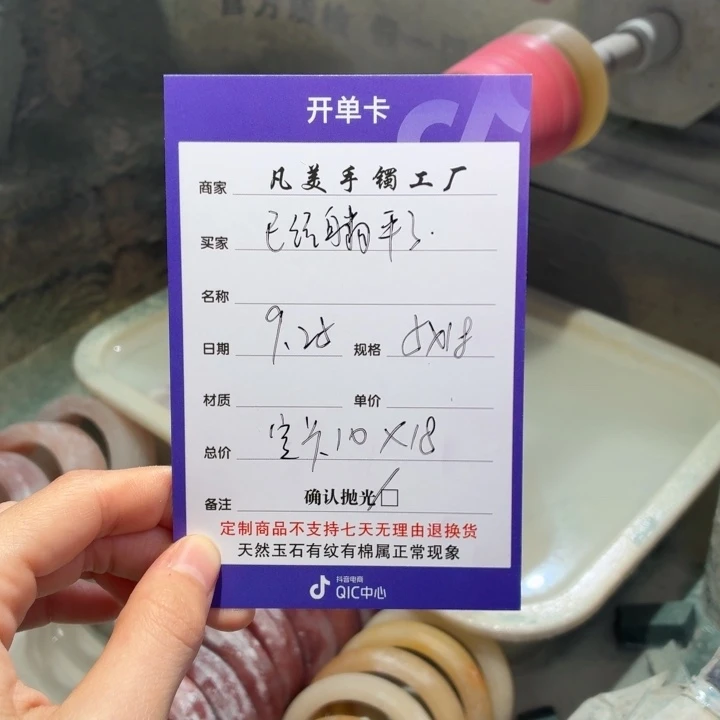 开单卡
商家 凡美手镯工厂
买家 已经躺平了.
名称
日期 9.25 规格
材质 单价
总价 10×18
备注 确认抛光
定制商品不支持七天无理由退换货
天然玉石有纹有棉属正常现象
抖音电商
QIC中心